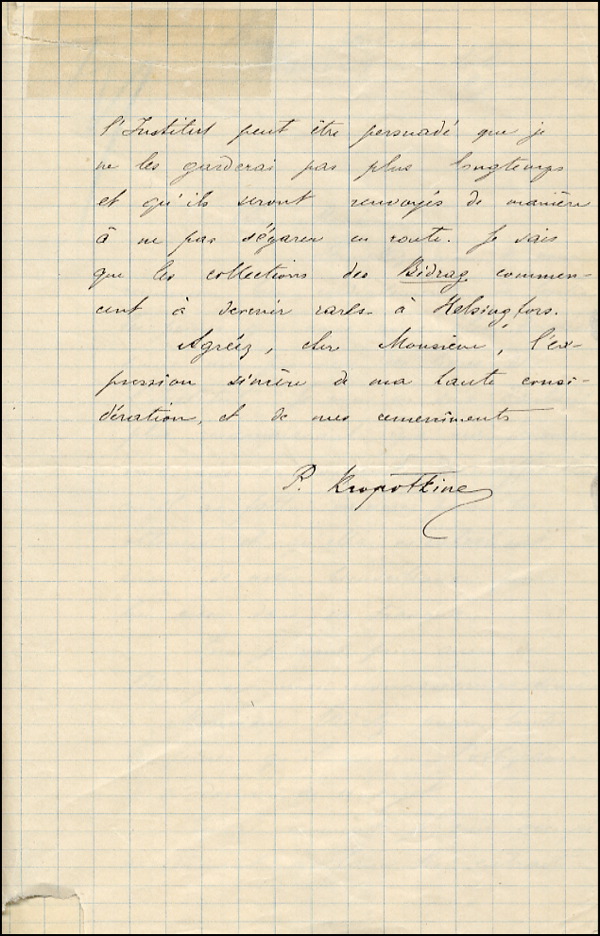 l'Institut peut être persuadé que je
ne les garderai pas plus longtemps
et qu'ils seront renvoyés de manière
à ne pas s'égarer en route. Je sais
que les collections des Bidrag commen-
cent à devenir rares à Helsingfors.
Agréez, cher Monsieur, l'ex-
pression sincère de ma haute consi-
dération, et de mes
P. Kropotkine